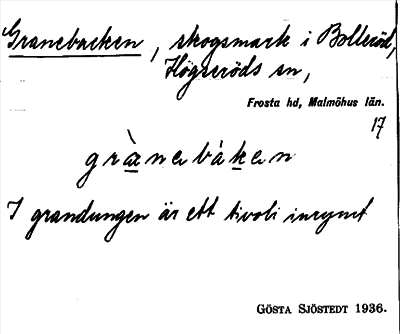 Granebacken, skogsmark i Bolleröd,
Högseröds sn,
Frosta hd, Malmöhus län.
17
grànebáken
I grandungen är ett tivoli inrymt
GÖSTA SJÖSTEDT 1936.